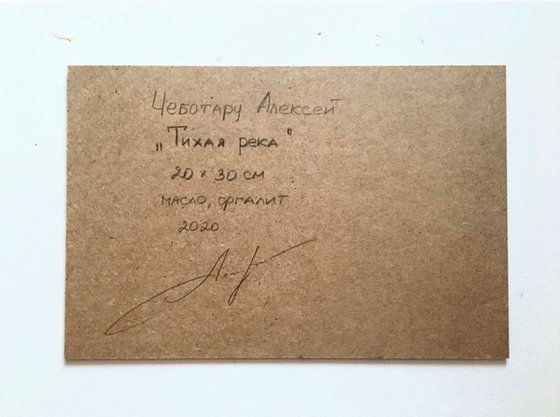 Чеботару Алексей
„Тихая река"
20 x 30 см
масло, оргалит
2020